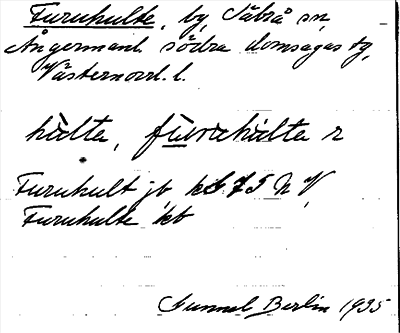 Furuhulte, by, Säbrå sn,
Ångermanl. södra domsagas tg,
Västernorrl. l.
hùlta, fùruhùlta r
Furuhult jb
Furuhulte kb
Gunnel Berlin 1935